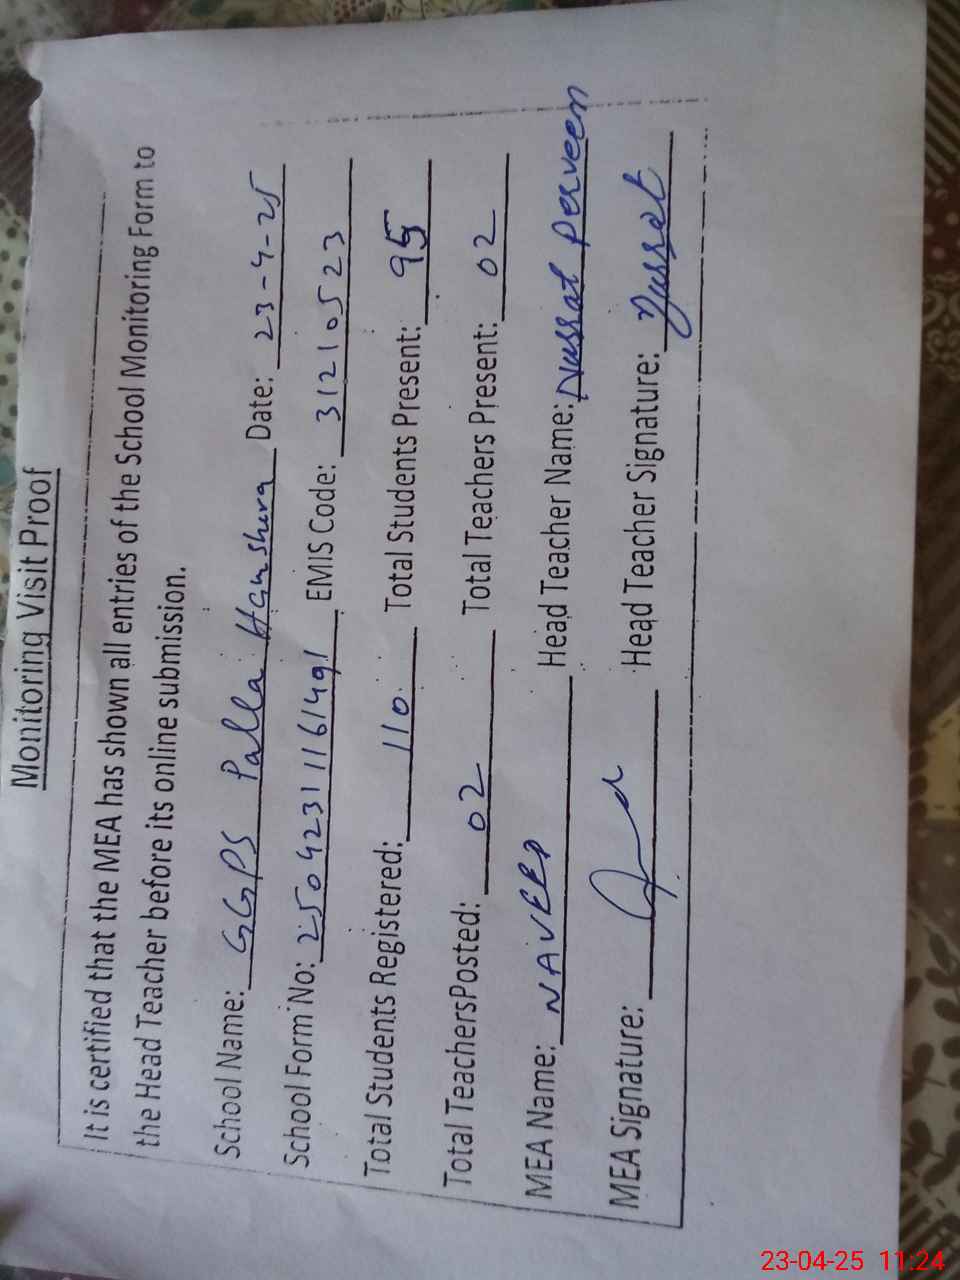 Monitoring Visit Proof
It is certified that the MEA has shown all entries of the School Monitoring Form to
the Head Teacher before its online submission.
School Name: GGPS Palla Hanshera Date: 23-4-25
School Form No: 25042311161491 EMIS Code: 31210523
Total Students Registered: 110 Total Students Present: 95
Total TeachersPosted: 02 Total Teachers Present: 02
MEA Name: NAVEED Head Teacher Name: Nussat Perveen
MEA Signature: Head Teacher Signature: Nussat
23-04-25 11:24